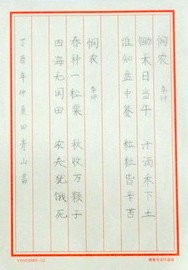 悯农 李绅
锄禾日当午 汗滴禾下土
谁知盘中餐 粒粒皆辛苦
悯农 李绅
春种一粒粟 秋收万颗子
四海无闲田 农夫犹饿死
丁酉年仲夏田青山書